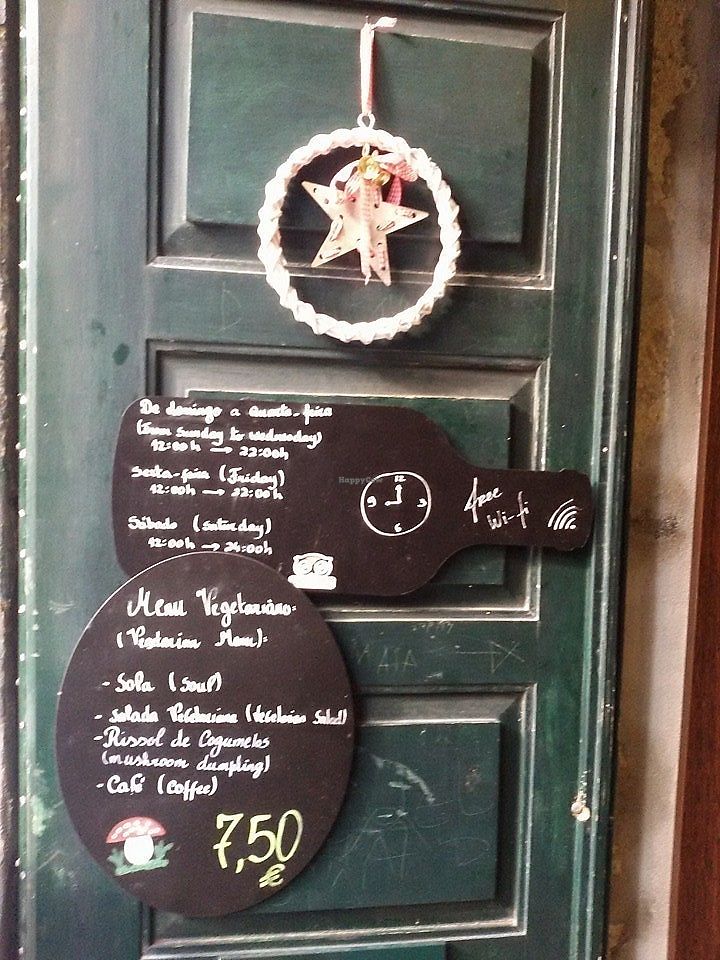 De domingo a Quarta-feira
(From Sunday to Wednesday)
12:00h → 22:00h
Sexta-feira (Friday)
12:00h → 22:00h
Sábado (Saturday)
12:00h → 24:00h
12
9 3
6
free
Wi-fi
HappyCow
Menu Vegetariano:
(Vegetarian Menu):
- Sopa (Soup)
- Salada Vegetariana (Vegetarian Salad)
- Rissol de Cogumelos
(mushroom dumpling)
- Café (Coffee)
7,50
€